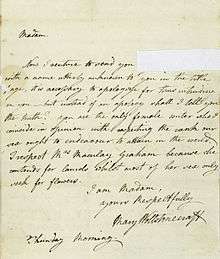 Madam,
Now I venture to send you
with a name utterly unknown to you in the title
page, it is necessary to apologize for thus intruding
on you — but instead of an apology shall I tell you
the truth? you are the only female writer who I
coincide in opinion with respecting the rank our
sex ought to endeavour to attain in the world.
I respect Mrs Macaulay Graham because she
contends for laurels whilst most of her sex only
seek for flowers.
I am Madam,
yours Respectfully
Mary Wollstonecraft
Thursday Morning.